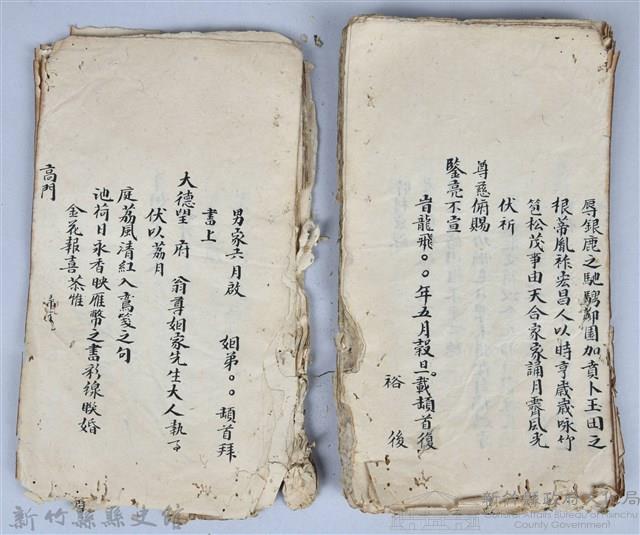 辱銀鹿之馳騶鄙園加賁卜玉田之
根蒂胤祚宏昌人以時亨歲歲咏竹
苞松茂事由天合家家誦月霽風光
伏祈
尊慈俯賜
鑒亮不宣
旹龍飛。。年五月穀旦。載頓首復
裕後
男家六月啟
姻弟。。頓首拜
書上
大德望府翁尊姻家先生大人執事
伏以荔月
庭荔風清紅入鸞箋之句
池荷日永香映雁幣之書彩線联婚
金花報喜恭惟
高門
新竹縣縣史館
新竹縣政府文化局
Cultural Affairs Bureau of Hsinchu
County Government